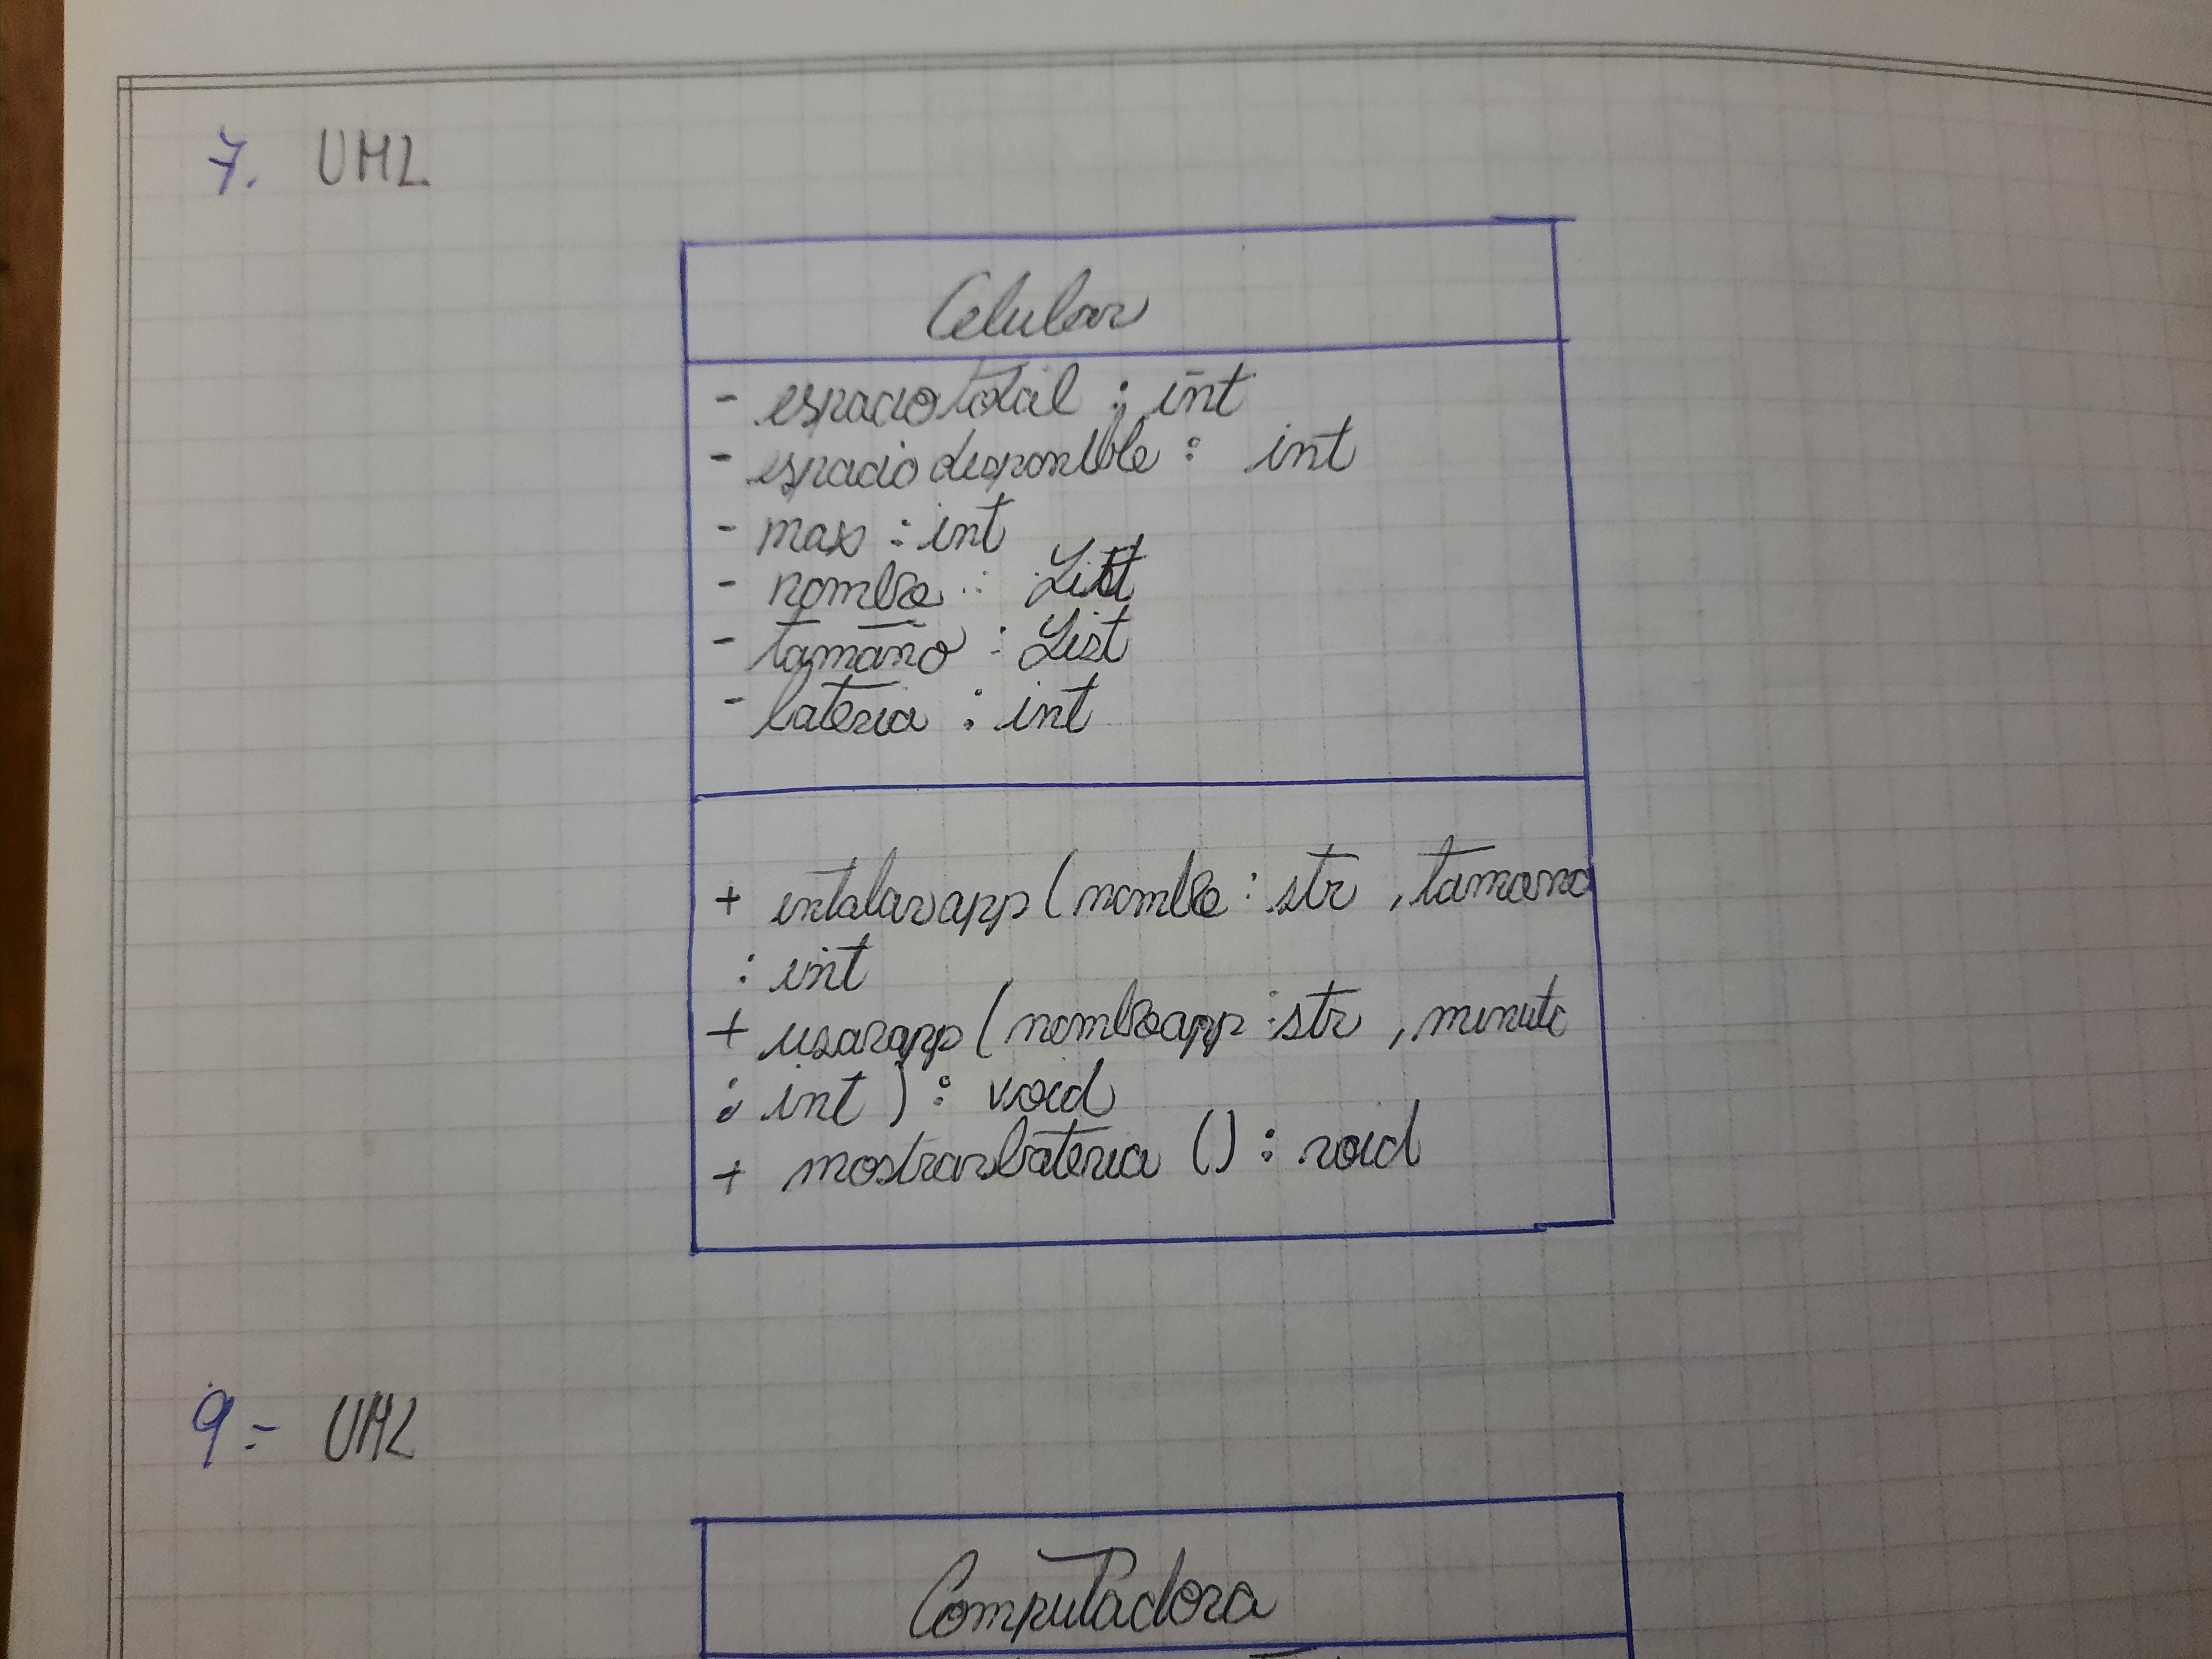 7. UML
Celular
- espaciototal : int
- espaciodisponible : int
- max : int
- nombe : List
- tamano : List
- bateria : int
+ instalarapp (nombe : str , tamano
: int
+ usarapp (nombapp : str , minuto
: int ) : void
+ mostrarbateria () : void
9.- UML
Computadora